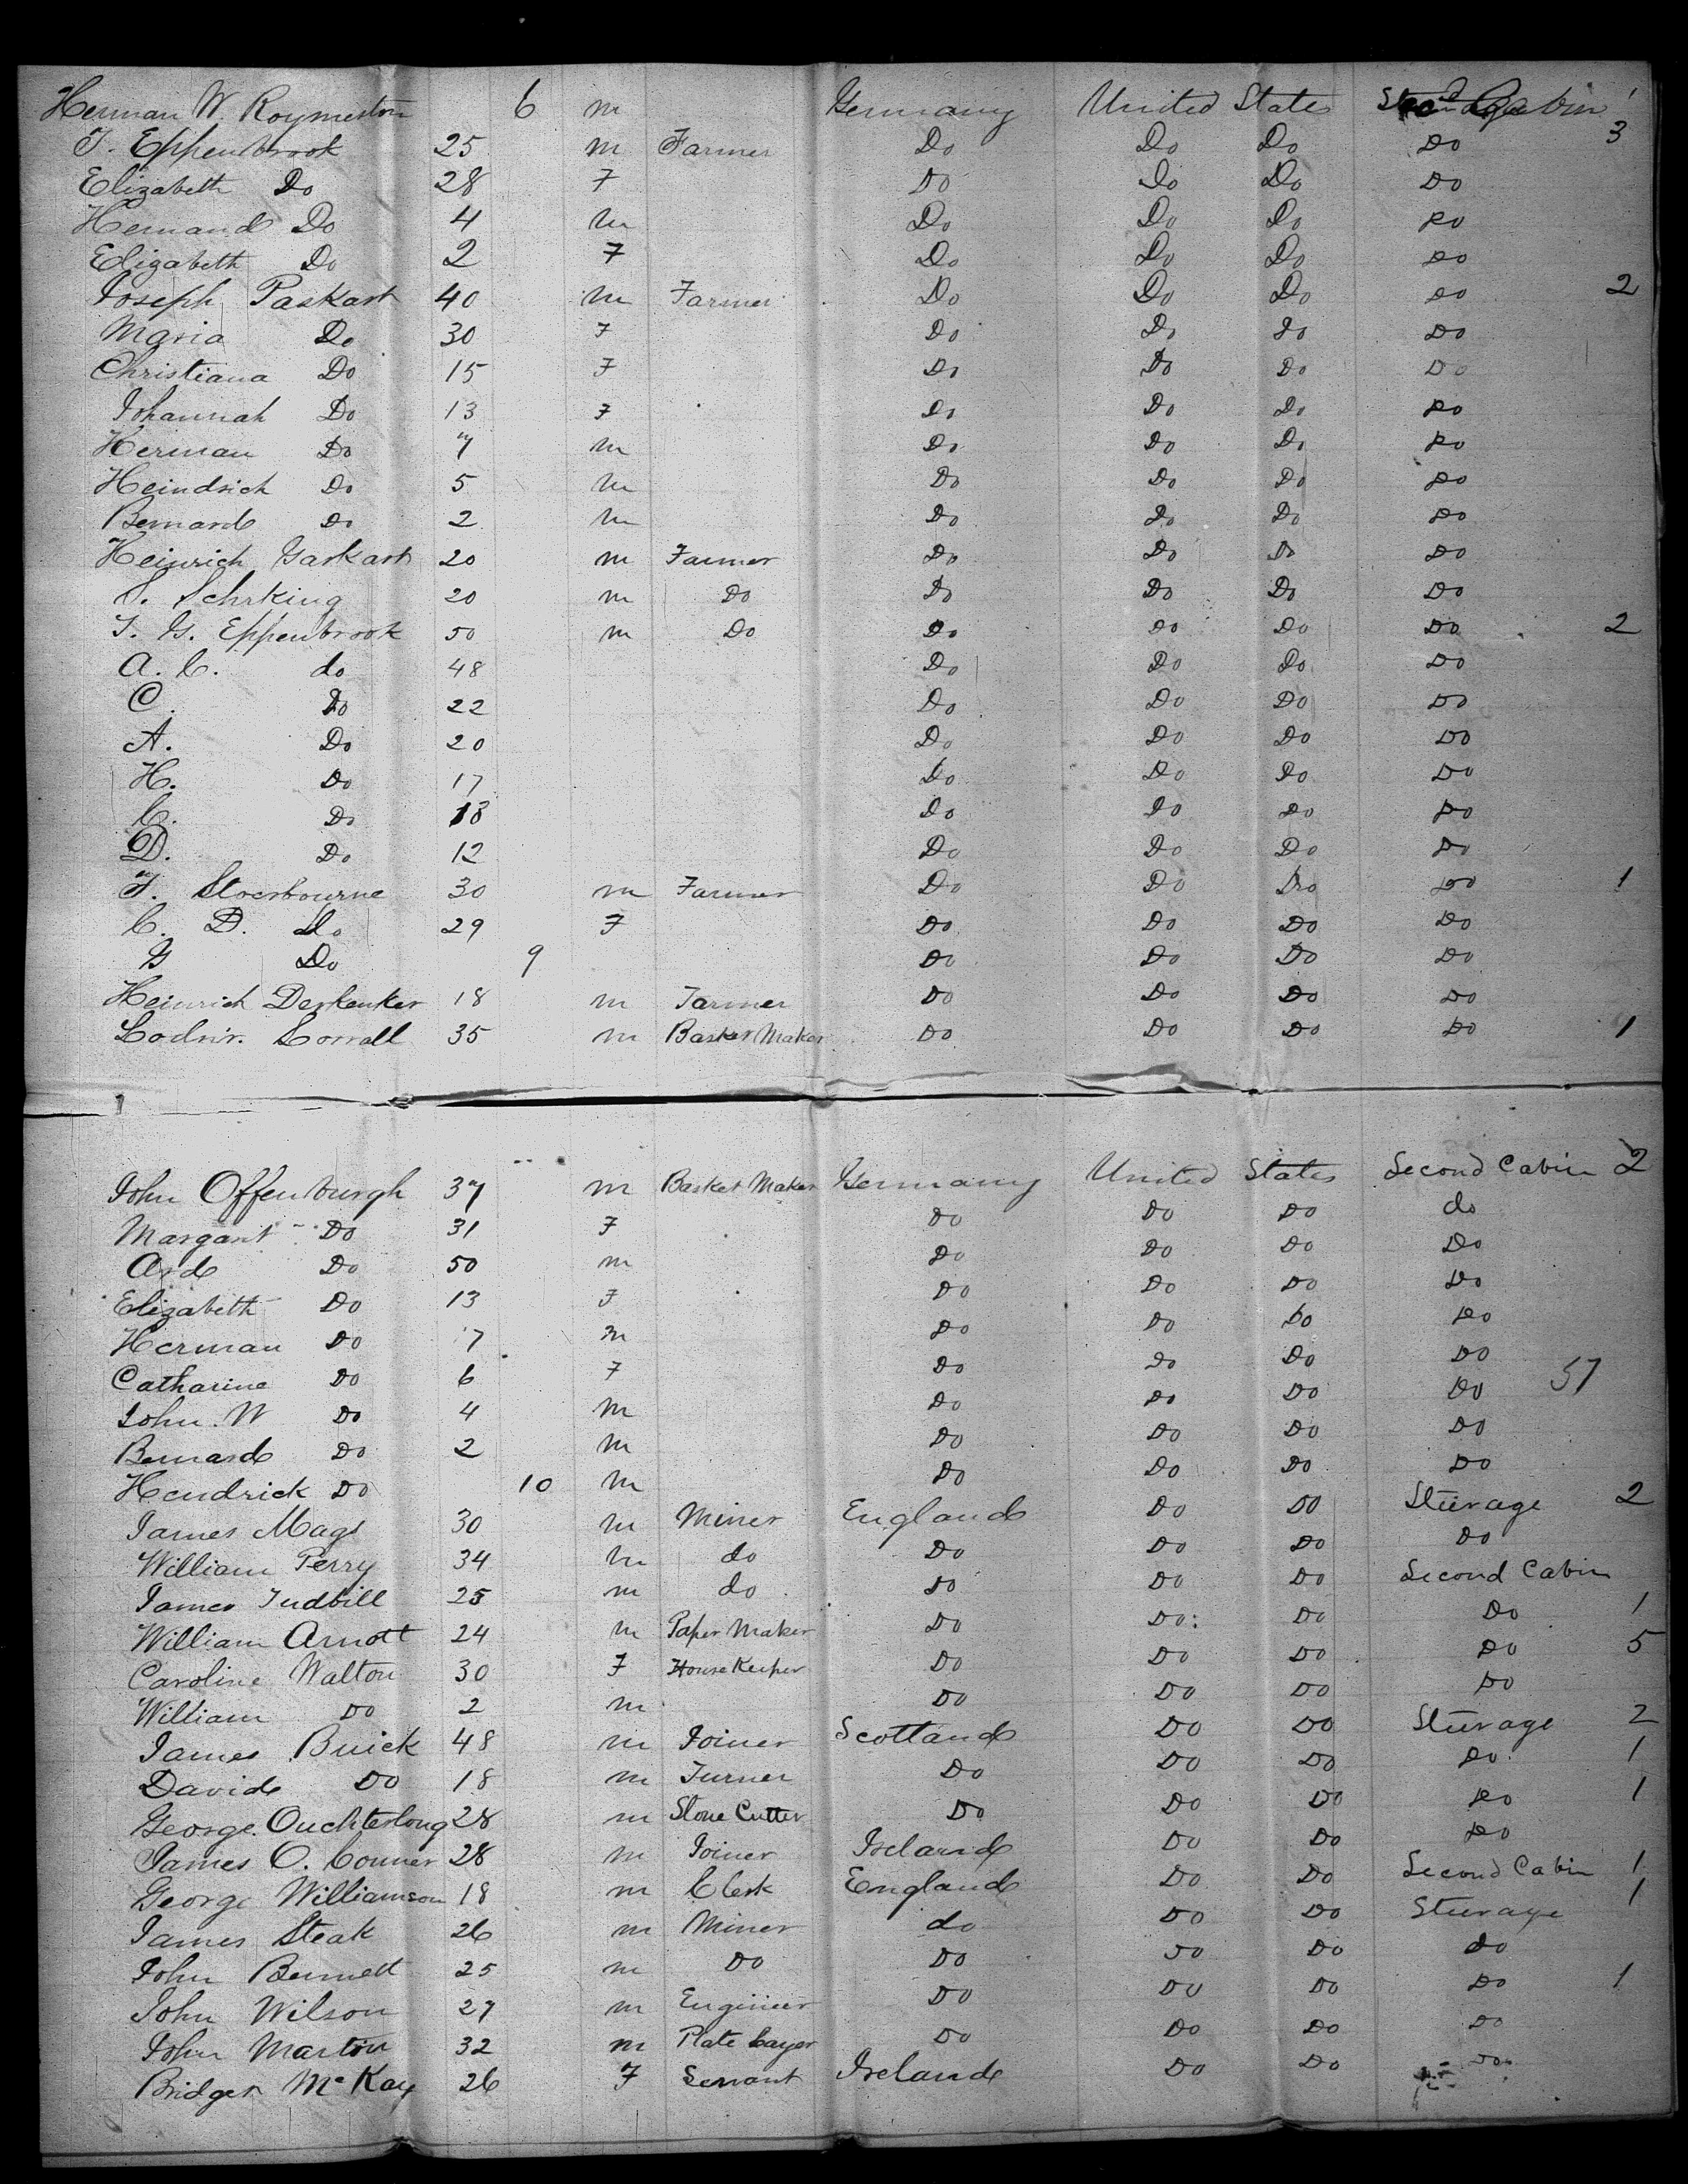 Herman W. Roymeston 6 m Germany United States Second Cabin 1
T. Eppenbrook 25 m Farmer Do Do Do Do 3
Elizabeth Do 28 F Do Do Do Do
Hernand Do 4 m Do Do Do Do
Elizabeth Do 2 F Do Do Do Do
Joseph Paskart 40 m Farmer Do Do Do Do 2
Maria Do 30 F Do Do Do Do
Christiana Do 15 F Do Do Do Do
Johannah Do 13 F Do Do Do Do
Herman Do 7 m Do Do Do Do
Heindrich Do 5 m Do Do Do Do
Bernard Do 2 m Do Do Do Do
Heinrich Gaskart 20 m Farmer Do Do Do Do
S. Schrking 20 m Do Do Do Do Do
T. G. Eppenbrook 50 m Do Do Do Do Do 2
A. C. do 48 Do Do Do Do
C. Do 22 Do Do Do Do
A. Do 20 Do Do Do Do
H. Do 17 Do Do Do Do
C. Do 13 Do Do Do Do
D. Do 12 Do Do Do Do
F. Stoesbourne 30 m Farmer Do Do Do Do 1
C. D. Do 29 F Do Do Do Do
G Do 9 Do Do Do Do
Heinrich Derkenker 18 m Farmer Do Do Do Do
Lorrall 35 m Basket Maker Do Do Do Do 1
John Offenburgh 37 m Basket Maker Germany United States Second Cabin 2
Margart Do 31 F Do Do Do do
Ard Do 50 m Do Do Do Do
Elizabeth Do 13 F Do Do Do Do
Herman Do 7 m Do Do Do Do
Catharine Do 6 F Do Do Do Do 57
John. W Do 4 m Do Do Do Do
Bernard Do 2 m Do Do Do Do
Hendrick Do 10 m Do Do Do Do
James Mags 30 m Miner England Do Do Steerage 2
William Perry 34 m do Do Do Do Do
James Tudbill 25 m do Do Do Do Second Cabin
William Arnott 24 m Paper Maker Do Do Do Do 1
Caroline Walton 30 F House Keeper Do Do Do Do 5
William Do 2 m Do Do Do Do
James Buick 48 m Joiner Scotland Do Do Steerage 2
David Do 18 m Turner Do Do Do Do 1
George Ouchterlong 28 m Stone Cutter Do Do Do Do 1
James O. Conner 28 m Joiner Ireland Do Do Do
George Williamson 18 m Clerk England Do Do Second Cabin 1
James Steak 26 m Miner do Do Do Steerage 1
John Bennett 25 m Do Do Do Do do
John Wilson 27 m Engineer Do Do Do Do 1
John Martin 32 m Plate Layer Do Do Do Do
Bridget McKay 26 F Servant Ireland Do Do Do